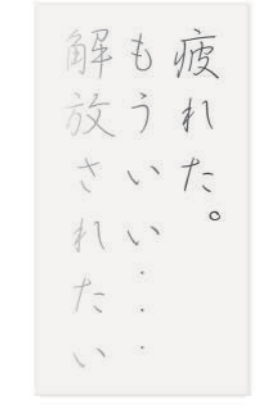 疲れた。
もういい・・・
解放されたい